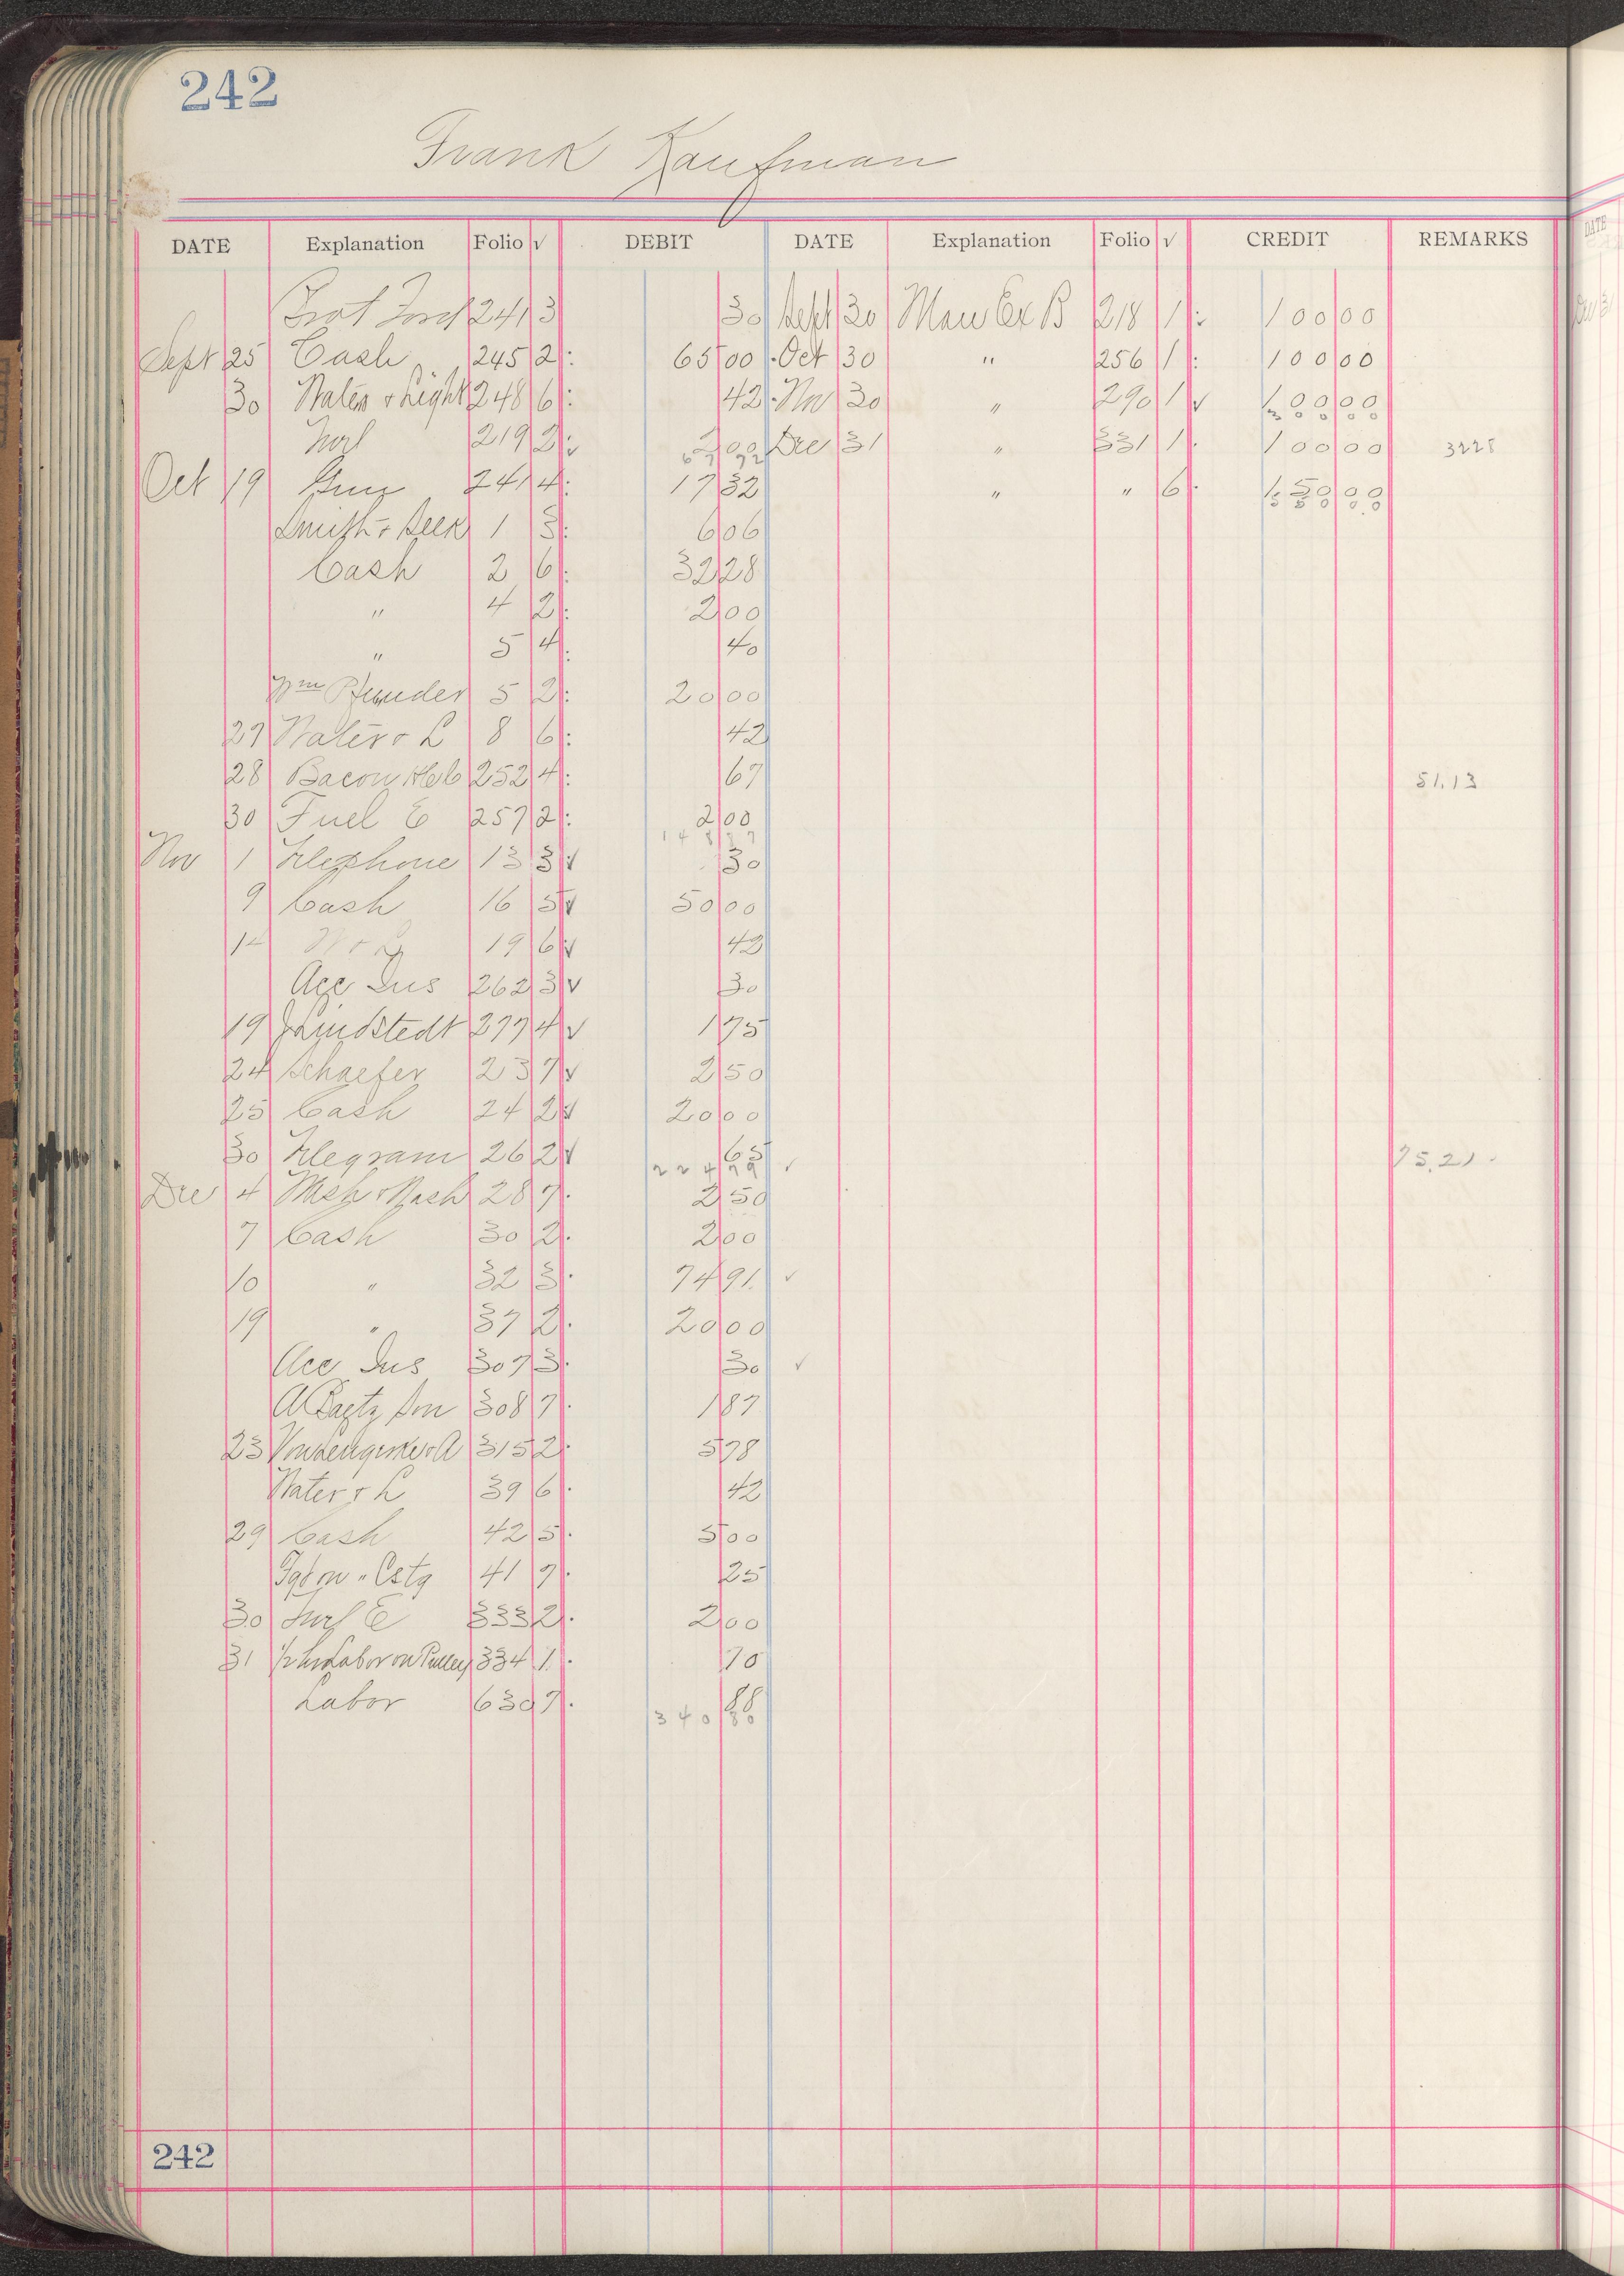 242
Frank Kaufman
DATE Explanation Folio √ DEBIT DATE Explanation Folio √ CREDIT REMARKS
241 3 30 Sept 30 Man Ex B 218 1 : 100 00
Sept 25 Cash 245 2 : 65 00 Oct 30 " 256 1 : 100 00
30 Water & Light 248 6 : 42 Nov 30 " 290 1 √ 100 00
300 00
219 2 : √ 2 00 Dec 31 " 331 1 . 100 00 3228
67 72
Oct 19 241 4 : 17 32 " " 6 . 150 00
550 00
Smith & 1 3 : 6 06
Cash 2 6 : 32 28
" 4 2 : 2 00
" 5 4 : 40
Wm Pfunder 5 2 : 20 00
27 Water & L 8 6 : 42
28 Bacon 252 4 : 67 51.13
30 Fuel E 257 2 : 2 00
148 87
Nov 1 Telephone 13 3 √ 30
9 Cash 16 5 √ 50 00
14 W & L 19 6 √ 42
Acc Ins 262 3 √ 30
19 J Lindstedt 277 4 √ 1 75
24 Schaefer 23 7 √ 2 50
25 Cash 24 2 √ 20 00
30 Telegram 26 2 √ 65 75.21
224 79 √
Dec 4 Msh & Nash 28 7 . 2 50
7 Cash 30 2 . 2 00
10 " 32 3 . 74 91 √
19 " 37 2 . 20 00
Acc Ins 307 3 . 30 √
A Son 308 7 . 1 87
23 & A 315 2 . 5 78
Water & L 39 6 . 42
29 Cash 42 5 . 5 00
Fgt on " Cstg 41 7 . 25
30 E 333 2 . 2 00
31 ½ hr Labor on Pulley 334 1 . 70
Labor 630 7 . 88
340 80
242